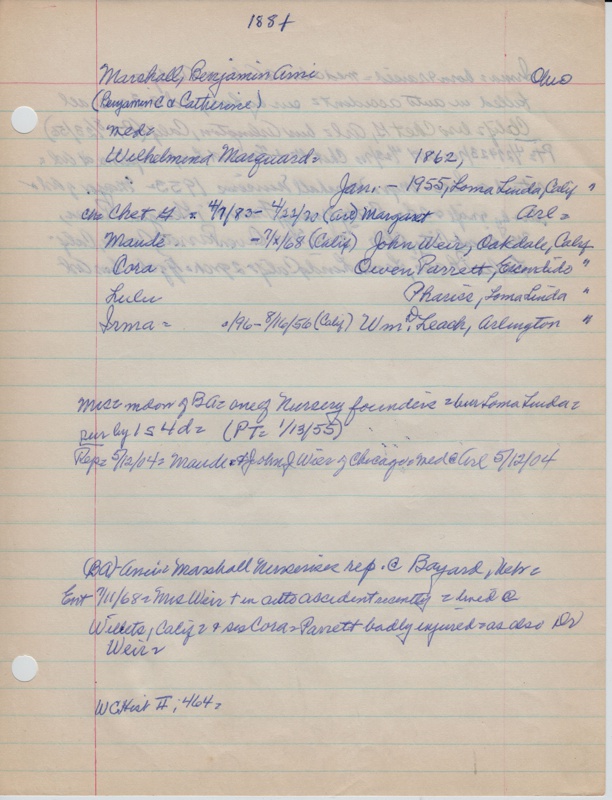 188+
Marshall, Benjamin Ami Ohio
(Benjamin C & Catherine)
med=
Wilhelmina Marquard= 1862,
Jan. - 1955, Loma Linda, Calif "
ch= Chet G = 4/7/83- 4/22/70 (Arl) Margaret Arl=
Maude -7/ /68 (Calif) John Weir, Oakdale, Calif
Cora Owen Parrett, Escondido "
Lulu Pharise, Loma Linda "
Irma = /96- 8/16/56 (Calif) Wm. D. Leach, Arlington "
Mrs= mdon of BA= one of Nursery founders = bur Loma Linda=
sur by 1 s 4 d= (PT= 1/13/55)
Rep= 5/12/04= Maude & John J Wier of Chicago= med @ Arl 5/12/04
(BA) Ami= Marshall Nurseries rep. @ Bayard, Neb=
Ent 7/11/68= Mrs Weir + in auto accident recently = lived @
Willits, Calif= & sis Cora= Parrett badly injured= as also Dr
Weir=
WCHist II; 464=